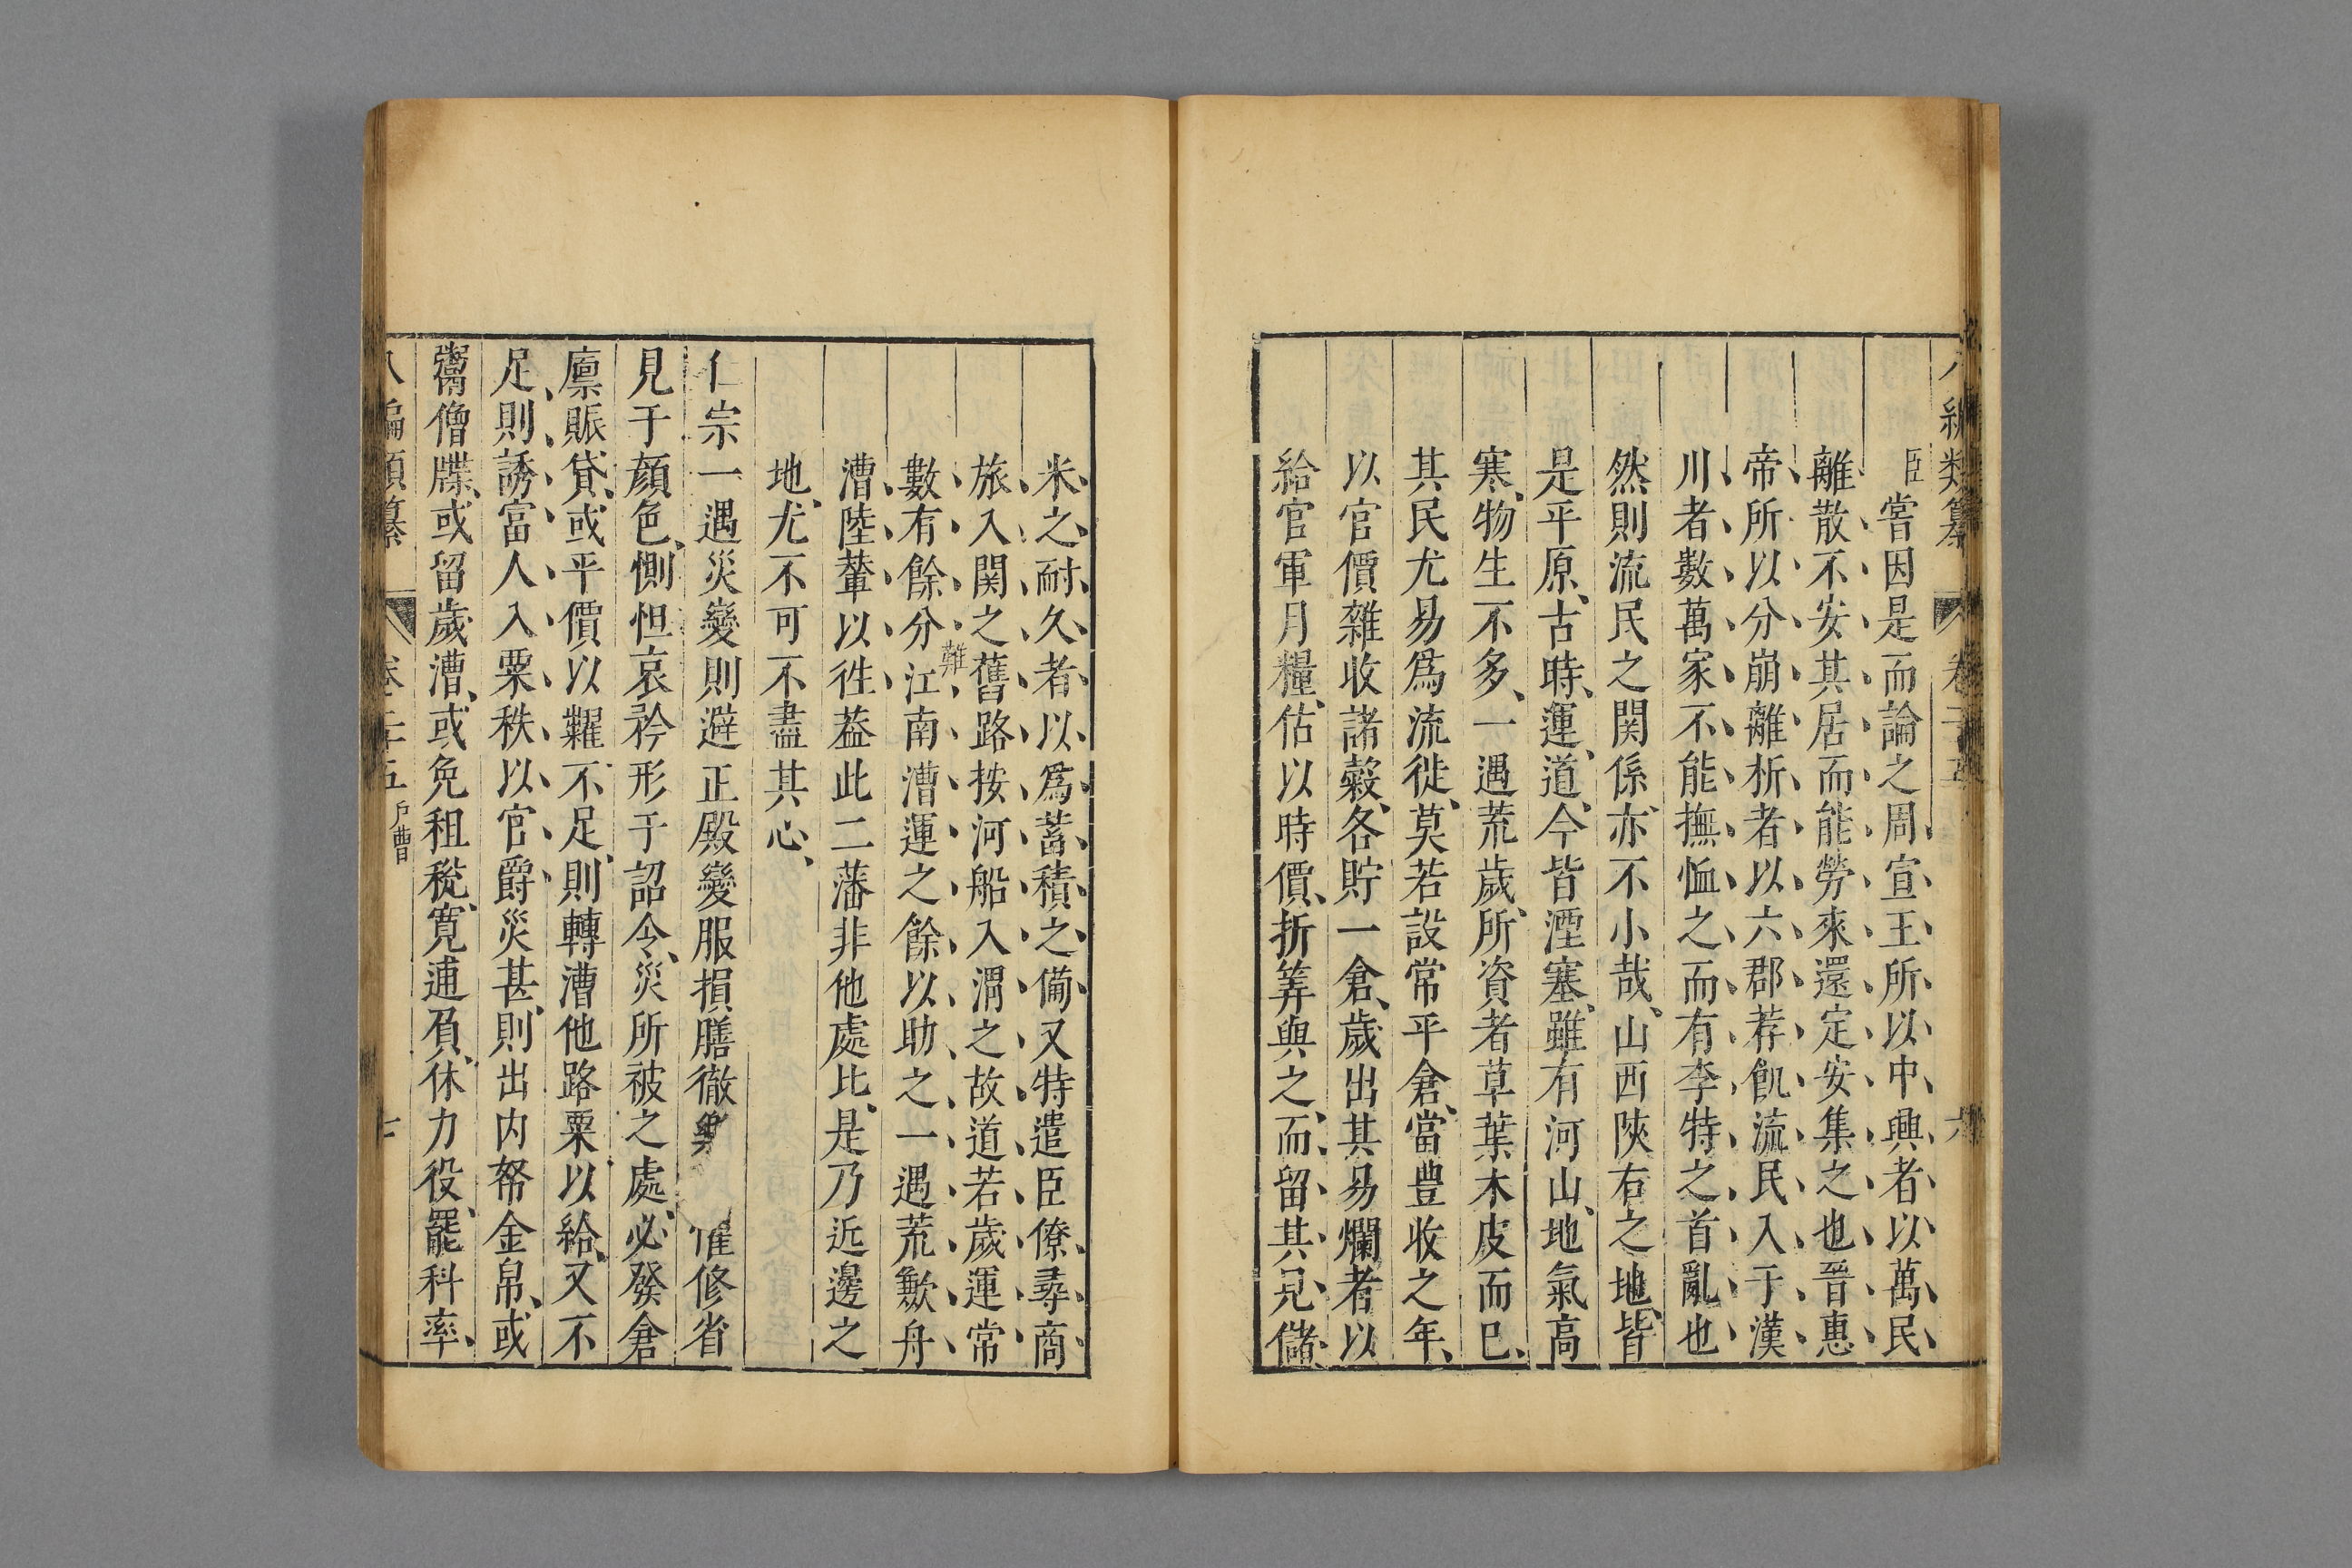 八編類纂 卷二十五 六
臣嘗因是而論之周宣王所以中興者以萬民
離散不安其居而能勞來還定安集之也晉惠
帝所以分崩離析者以六郡荐飢流民入于漢
川者數萬家不能撫恤之而有李特之首亂也
然則流民之関係亦不小哉山西陝右之地皆
是平原古時運道今皆湮塞雖有河山地氣高
寒物生不多一遇荒歲所資者草葉木皮而已
其民尤易爲流徙莫若設常平倉當豊收之年
以官價雜收諸穀各貯一倉歲出其易爛者以
給官軍月糧估以時價折筭與之而留其見儲
米之耐久者以爲蓄積之備又特遣臣僚尋商
旅入関之舊路按河船入渭之故道若歲運常
難
數有餘分江南漕運之餘以助之一遇荒歉舟
漕陸輦以徃葢此二藩非他處比是乃近邊之
地尤不可不盡其心
仁宗一遇災變則避正殿變服損膳徹樂惟修省
見于顔色惻怛哀矜形于詔令災所被之處必發倉
廪賑貸或平價以糶不足則轉漕他路粟以給又不
足則誘富人入粟秩以官爵災甚則出内帑金帛或
鬻僧牒或留歲漕或免租稅寛逋負休力役罷科率
八編類纂 卷二十五 戶曹 七